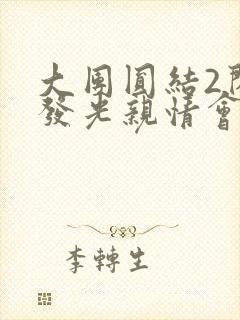 大團圓結2閃
發光親情會
李轉生